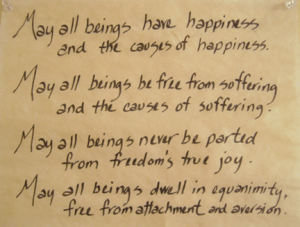 May all beings have happiness
and the causes of happiness.
May all beings be free from soffering
and the causes of suffering.
May all beings never be parted
from freedom's true joy.
May all beings dwell in equanimity,
free from attachment and aversion.